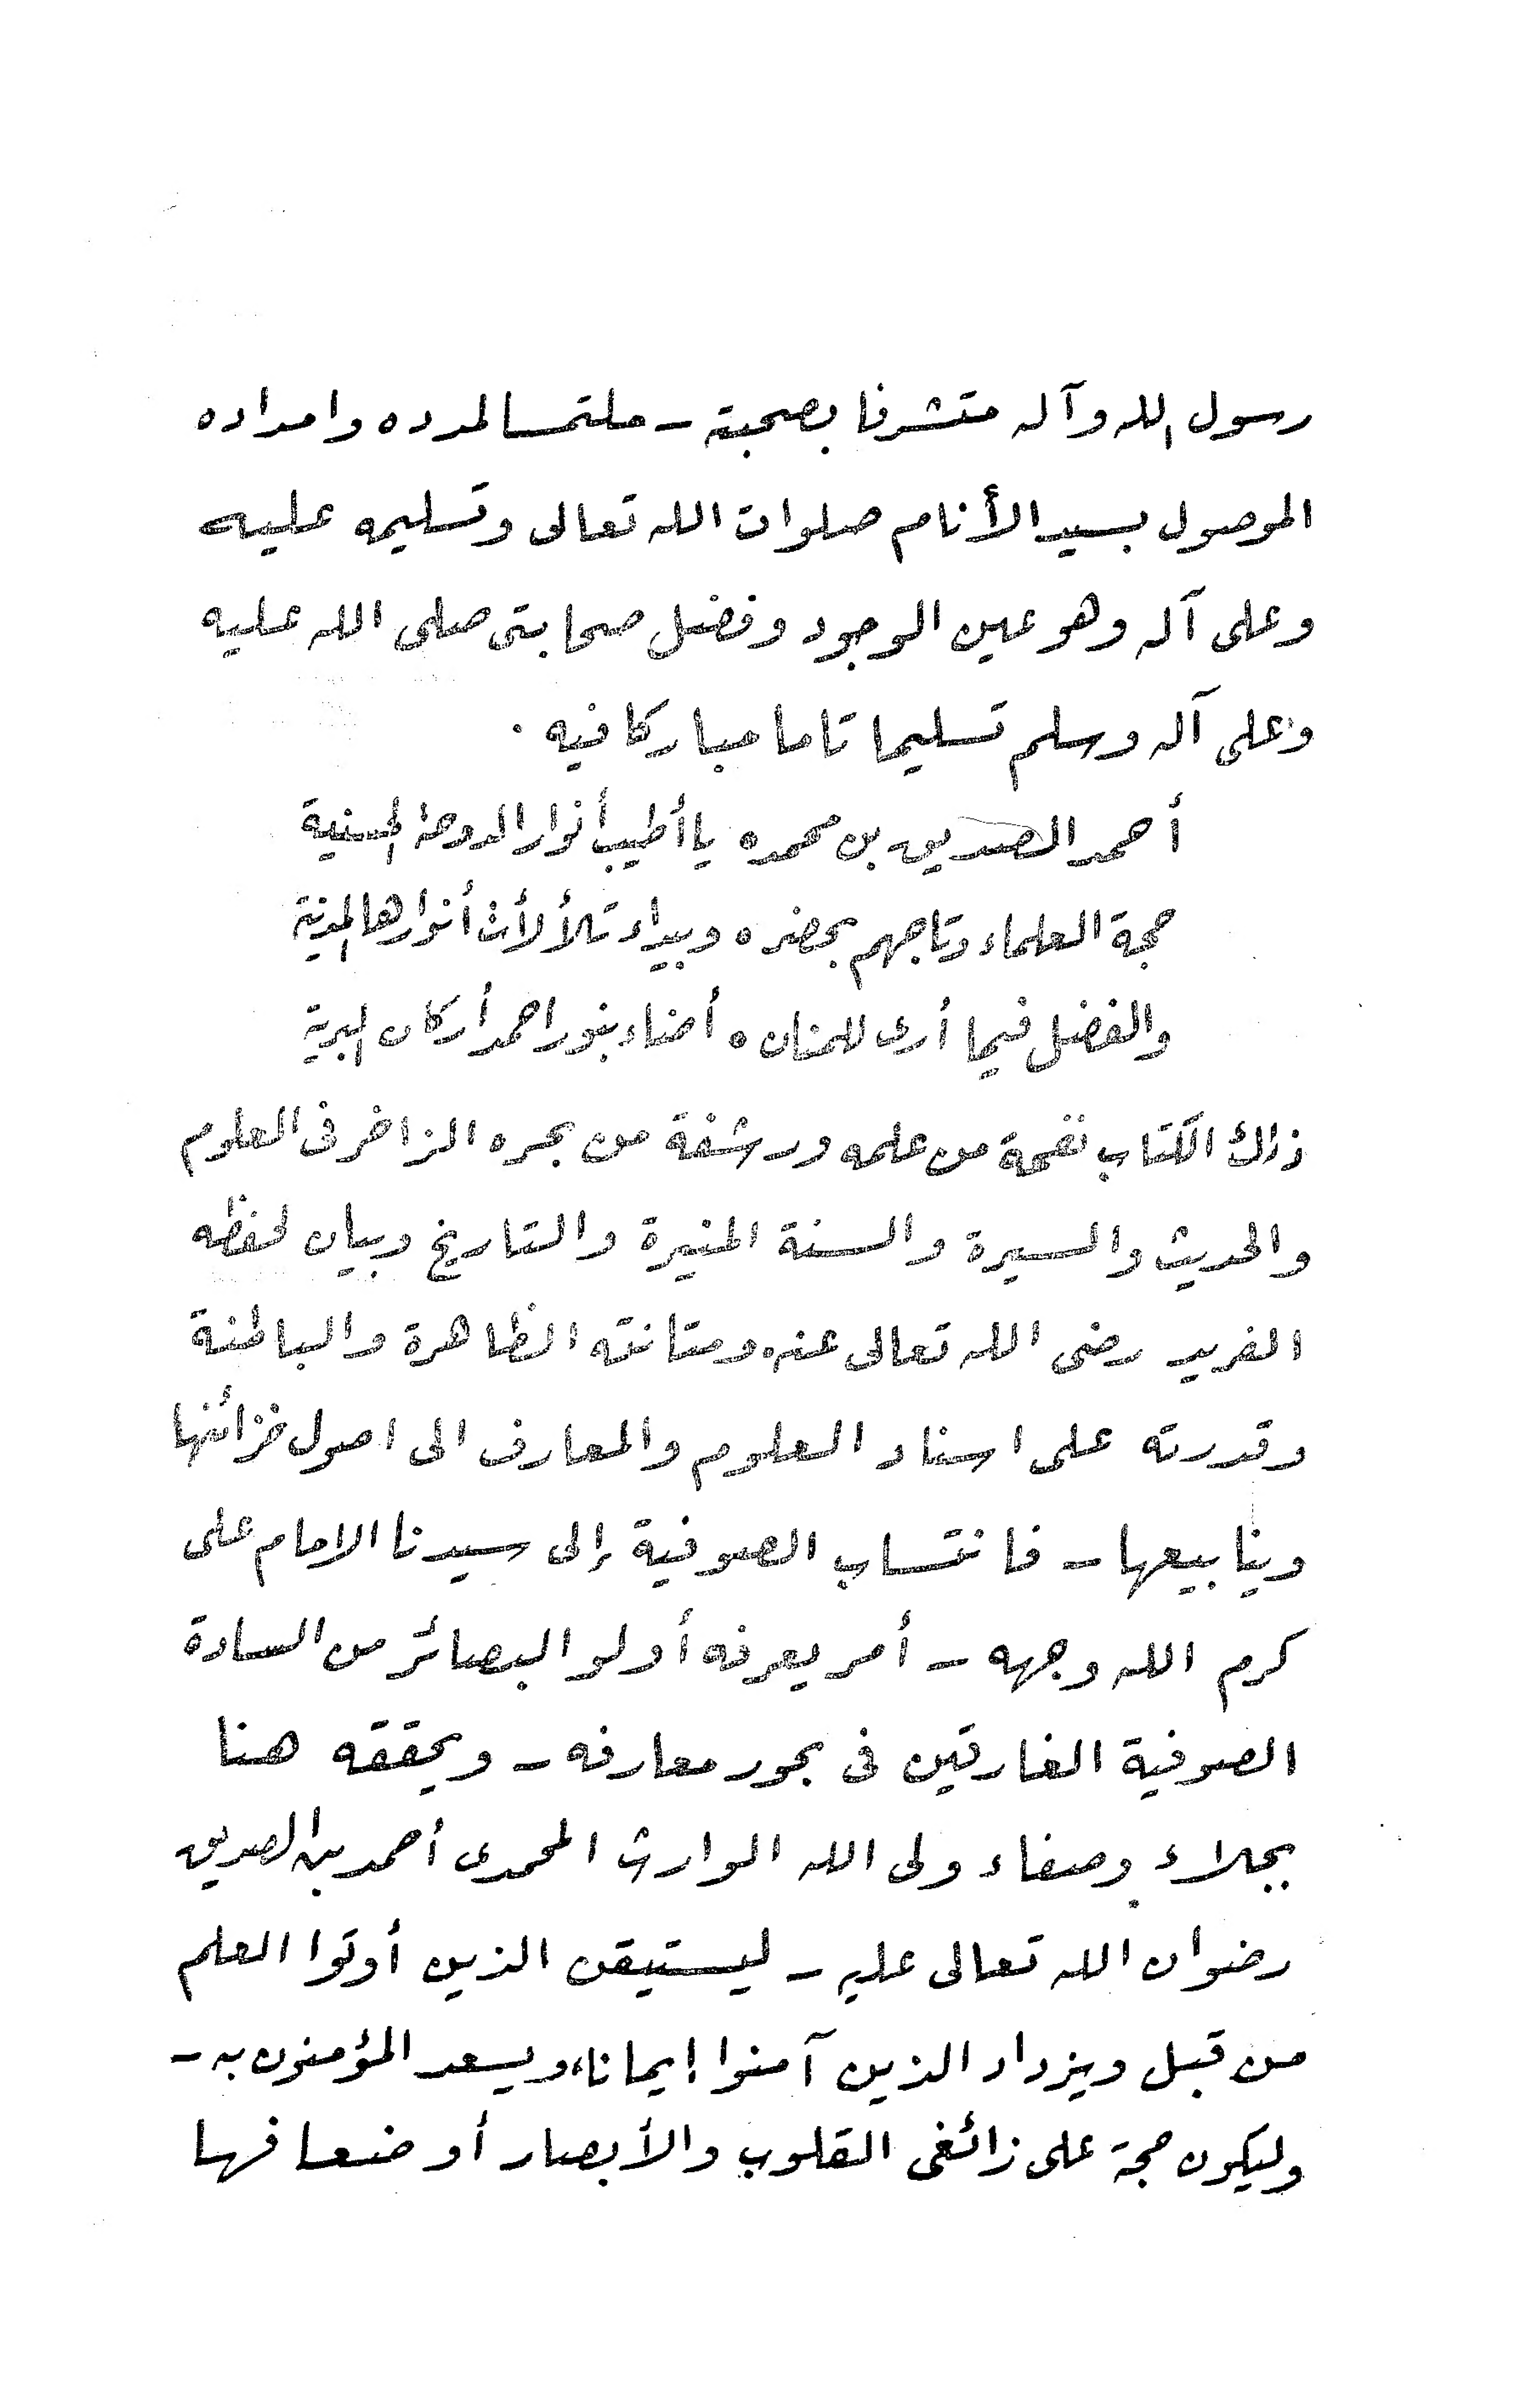 رسول الله وآله متشرفا بصحبته - ملتمسا لمدده وامداده
الموصول بسيد الأنام صلوات الله تعالى وتسليمه عليه
وعلى آله وهو عين الوجود وفضل صحابتى صلى الله عليه
وعلى آله وسلم تسليما تاما مباركا فيه .
أحمد الصديق بن محمد ه يا أطيب أنوار الدوحة الحسنية
حجة العلماء وتاجهم بحضره وبيداء تلألأت أنوارها المدنية
والفضل فيما أرى للمنان ه أضاء بنور احمد أركان البرية
ذاك الكتاب نفحة من علمه ورشفة من بحره الزاخر فى العلوم
والحديث والسيرة والسنة المنيرة والتاريخ وبيان لحفظه
الفريد رضى الله تعالى عنه ومتانته الظاهرة والباطنة
وقدرته على اسناد العلوم والمعارف الى اصول خزائنها
وينابيعها - فانتساب الصوفية إلى سيدنا الامام على
كرم الله وجهه - أمر يعرفه أولو البصائر من السادة
الصوفية الغارقين فى بحور معارفه - ويحققه هنا
بجلاء وصفاء ولى الله الوارث المحمدى أحمد بن الصديق
رضوان الله تعالى عليه - ليستيقن الذين أوتوا العلم
من قبل ويزداد الذين آمنوا إيمانا، ويسعد المؤمنون به -
وليكون حجة على زائغى القلوب والأبصار أو ضعافها